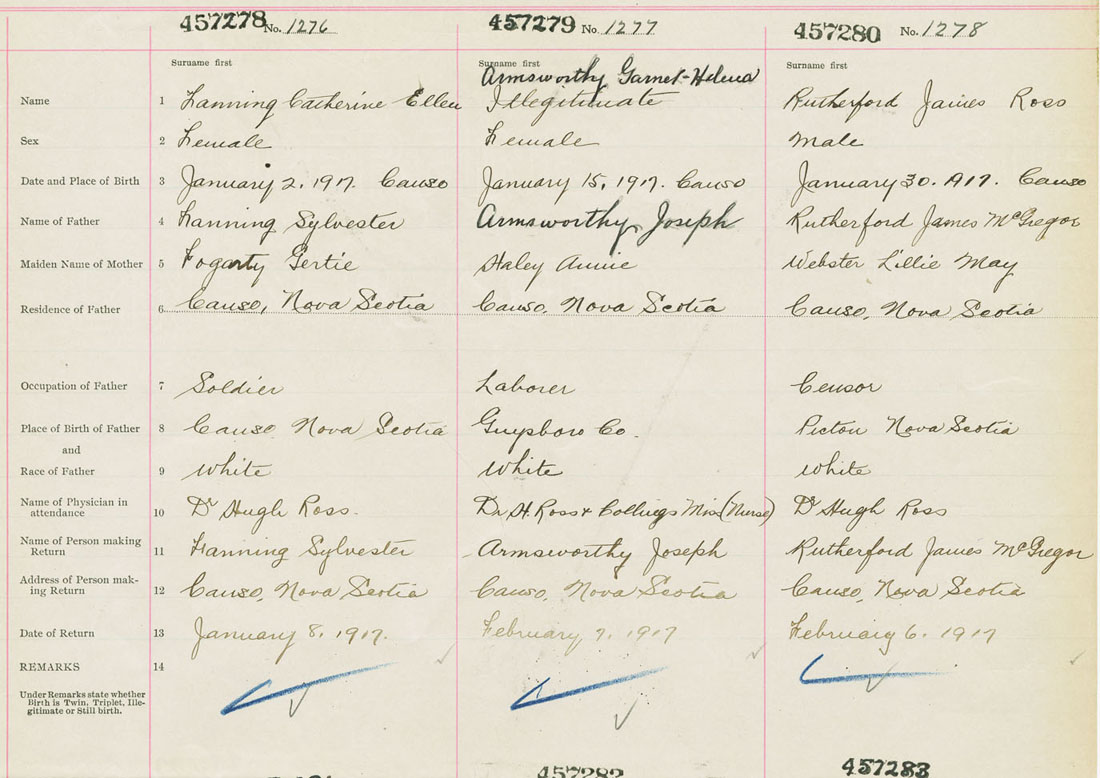 457278 No. 1276 457279 No. 1277 457280 No. 1278
Surname first Surname first Surname first
Armsworthy Garnet-Helena
Name 1 Fanning Catherine Ellen Illegitimate Rutherford James Ross
Sex 2 Female Female Male
Date and Place of Birth 3 January 2, 1917. Canso January 15, 1917. Canso January 30. 1917. Canso
Name of Father 4 Fanning Sylvester Armsworthy, Joseph Rutherford James McGregor
Maiden Name of Mother 5 Fogarty Gertie Haley Annie Webster Lillie May
Residence of Father 6 Canso, Nova Scotia Canso, Nova Scotia Canso, Nova Scotia
Occupation of Father 7 Soldier Laborer Censor
Place of Birth of Father 8 Canso Nova Scotia Guysboro Co. Picton Nova Scotia
and
Race of Father 9 White White White
Name of Physician in
attendance 10 Dr Hugh Ross. Dr H. Ross + Collings Miss (Nurse) Dr Hugh Ross
Name of Person making
Return 11 Fanning Sylvester Armsworthy Joseph Rutherford James McGregor
Address of Person mak-
ing Return 12 Canso, Nova Scotia Canso, Nova Scotia Canso, Nova Scotia
Date of Return 13 January 8, 1917. February 7, 1917 February 6. 1917
REMARKS 14
Under Remarks state whether
Birth is Twin, Triplet, Ille-
gitimate or Still birth.
457282 457283